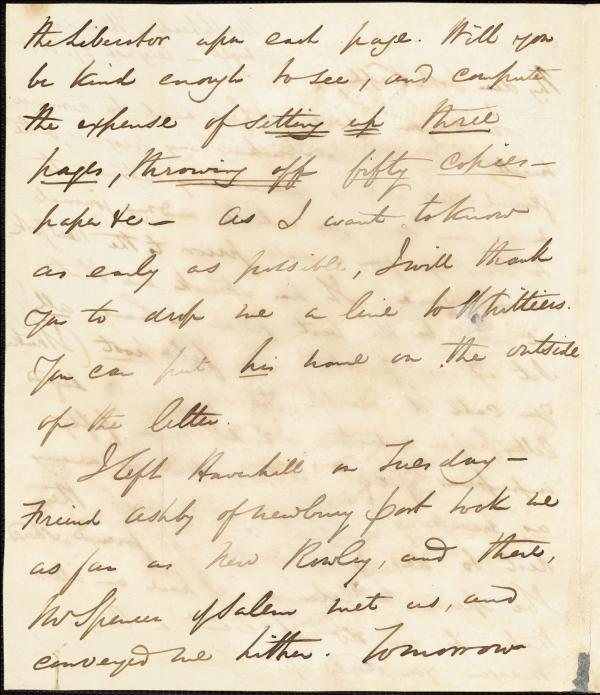 the Liberator upon each page. Will you
be kind enough to see, and compute
the expense of setting up three
pages, throwing off fifty copies—
paper &c— As I want to know
as early as possible, I will thank
you to drop me a line to Whittiers.
You can put his name on the outside
of the letter.
I left Haverhill on Tuesday—
Friend Ashby of Newbury port took me
as far as New Rowley, and there,
Mr Spencer of Salem met us, and
conveyed me hither. Tomorrow